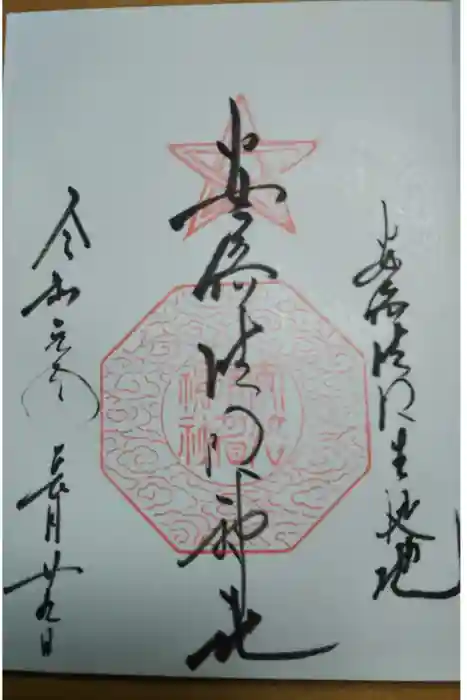 安倍晴明生誕地
安倍晴明神社
令和元年 長月廿九日